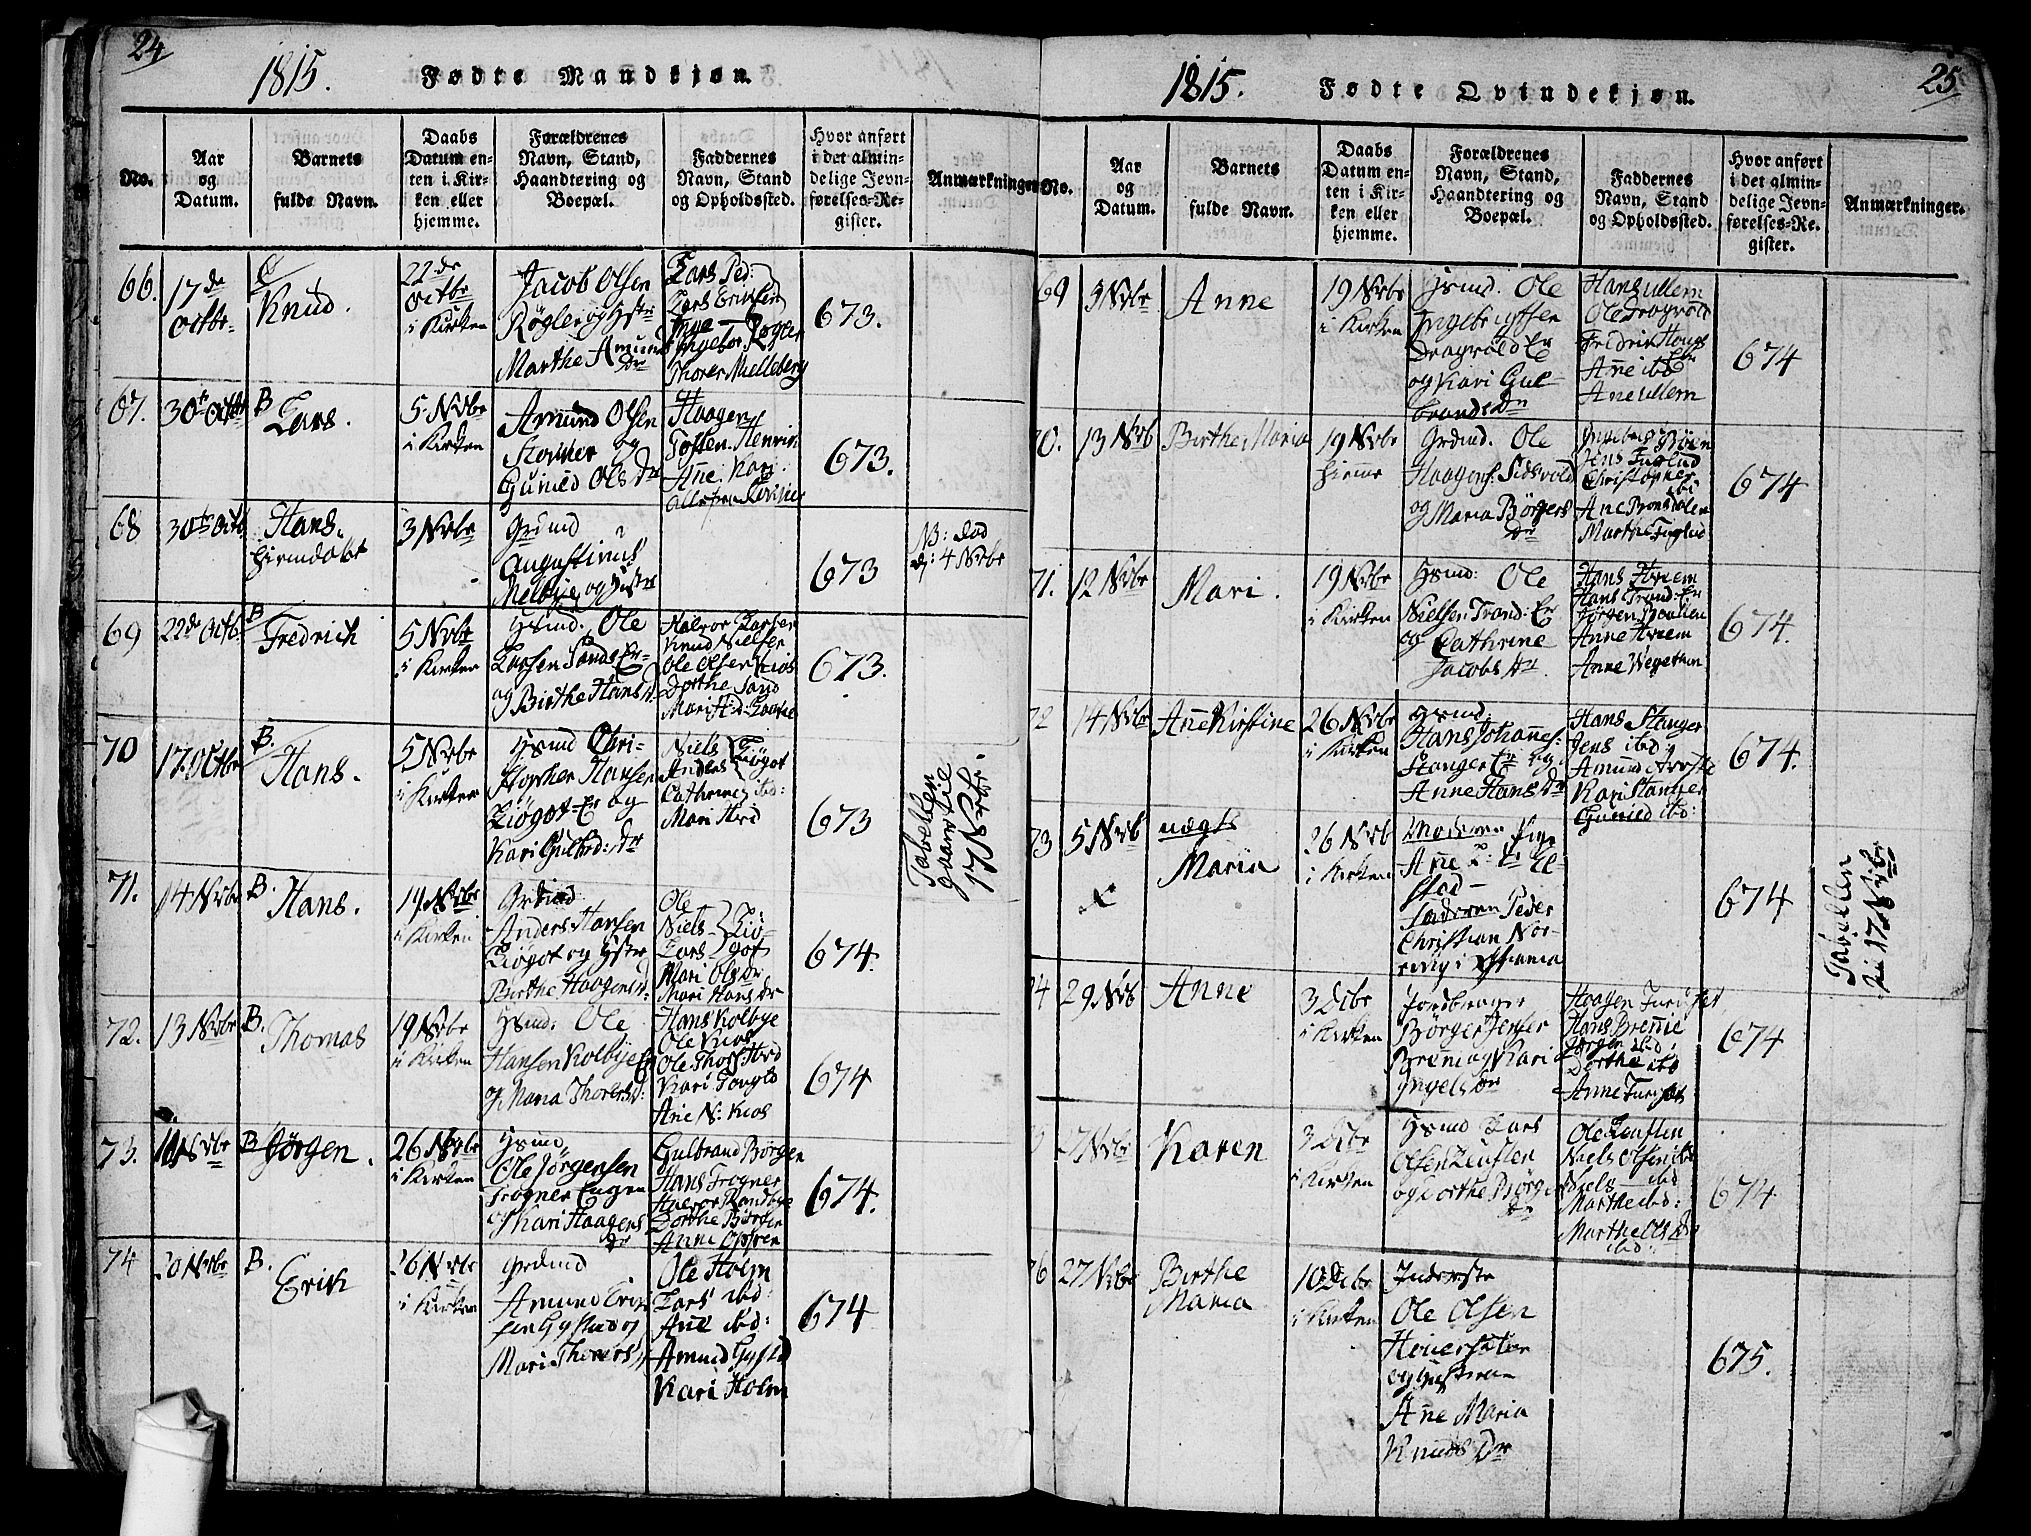 24
1815.
Fødte Mandkjøn.
No.
Aar
og
Datum.
Barnets
fulde Navn.
Daabs
Datum en-
ten i Kir-
ken eller
hjemme.
Forældrenes
Navn, Stand,
Haandtering og
Boepæl.
Faddernes
Navn, Stand
og Opholdssted.
Hvor anført
i det almin-
delige Jevn-
førelses-Re-
gister.
Anmærkninger
66.
17de
Octbr.
Knud.
22de
Octbr
i Kirken
Jacob Olsen
Røgler og Hstr
Marthe Amunds
Dr
Lars Ped:
Lars Eriksen
Thores Mielleberg
673.
67.
30te Octbr
B
Lars.
5 Nvbr
i Kirken
Amund Olsen
og
Gunild Ols Dr
Haagen
Henrik
Ane. Kari.
673.
68
30te Octb.
Hans.
hiemdøbt
3 Nvbr
Grdmd
Augustinus
Melbye og Hustr
673
NB: død
d: 4 Nvbr
69
22de Octb.
B
Fredrich
5 Nvbr
i Kirken
Hsmd. Ole
Larsen Sands Er-
og Birthe Hans D.
Halvor Larsen
Knud Nielsen
Ole Olsen Kios
Dorthe Sand
673.
70
17. Octbr
B.
Hans.
5 Nvbr
i Kirken
Hsmd Chri-
stopher Hansen
Liøgot-Er og
Kari Gulbd: Dr
Niels
Anders
Liøgot
Cathrine ibd:
Mari
673
Tabellen
17 Nvbr.
71.
14 Nvbr
B.
Hans.
19 Nvbr
i Kirken
Grdmd
Anders Hansen
Liøgot og Hstr
Birthe Haagens D.
Ole
Niels
Lars
Liø-
got
Mari Ols Dr
Mari Hans Dr
674.
72.
13 Nvbr
B.
Thomas
19 Nvbr
i Kirken
Hsmd: Ole
Hansen Kolbye Er
og Maria Thorers D:
Hans Kolbye
Ole Kios
Kari
Ane N: Kios
674
73.
10 Nvbr
B
Jørgen.
26 Nvbr
i Kirken
Hsmd,
Ole Jørgensen
Frogner Engen
og Kari Haagens
Dr
Gulbrand Børgen
Hans Frogner
Dorthe Børgen
Anne Opsven
674.
74
20 Nvbr
B.
Erik
26 Nvbr
i Kirken
Grdmd
Amund Erik
sen Gystad og
Mari Thorers D
Ole Holm
Lars ibd:
Ane ibd:
Amund Gystd
Kari Holm
674
25
1815.
Fødte Qvindekjøn.
No.
Aar
og
Datum.
Barnets
fulde Navn.
Daabs
Datum en-
ten i Kir-
ken eller
hjemme.
Forældrenes
Navn, Stand,
Haandtering og
Boepæl.
Faddernes
Navn, Stand
og Opholdssted.
Hvor anført
i det almin-
delige Jevn-
førelses-Re-
gister.
Anmærkninger.
69
3 Nvbr
Anne
19 Nvbr
i Kirken
Hsmd. Ole
Ingebrigtsen
Dragvold Er
og Kari Gul-
brands Dr
Hans Ullern
Ole Dragvold
Fredrik Haug
Ane ibd
Ane Ullern
674
70.
13 Nvb
Birthe Maria
19 Nvbr
hieme
Grdmd. Ole
Haagens. Sidsvold
og Maria Børgers
Dr
Jens Fuglud
Christopher
ibi
Marthe Fuglud
674
71.
12 Nvbr
Mari.
19 Nvbr
i Kirken
Hsmd: Ole
Nielsen Trand: Er
og Cathrine
Jacobs Dr
Hans Hvem
Hans Trand: Er
Anne Hvem
674.
72
14 Nvbr
Ane Kirstine
26 Nvbr
i Kirken
Hsmd.
Hans Johannes:
Stanger Er og
Anne Hans Dr
Hans Stanger
Jens ibd:
Amund
Kari Stanger
Gunild ibd:
674.
73
5 Nvb
uægte
Maria
26 Nvb
i Kirken
Moderen Pige
Ane L: Dr El-
stad -
Faderen Peder
Christian Nor-
revig i
674
Tabellen
17 Nvbr
74
29 Nvb
Anne
3 Dcbr
i Kirken
Jordbruger
Børger Jensen
Brennie og Kari
Ingels Dr
Haagen Turishet
Hans Brennie
Jørgen ibd.
Dorthe ibd
Anne Turishet
674
27 Nvbr
Karen
3 Dcbr
i Kirken
Hsmd Lars
Olsen
og Dorthe Børge
Dr
Niels Olsen ibd
Niels - ibd
Marthe ibd:
Marthe Ols Dr
ibd:
674
76
27 Nvbr
Birthe
Maria
10 Dcbr
i Kirken
Inderste
Ole Olsen
og Hustruen
Ane Maria
Knuds Dr
675.